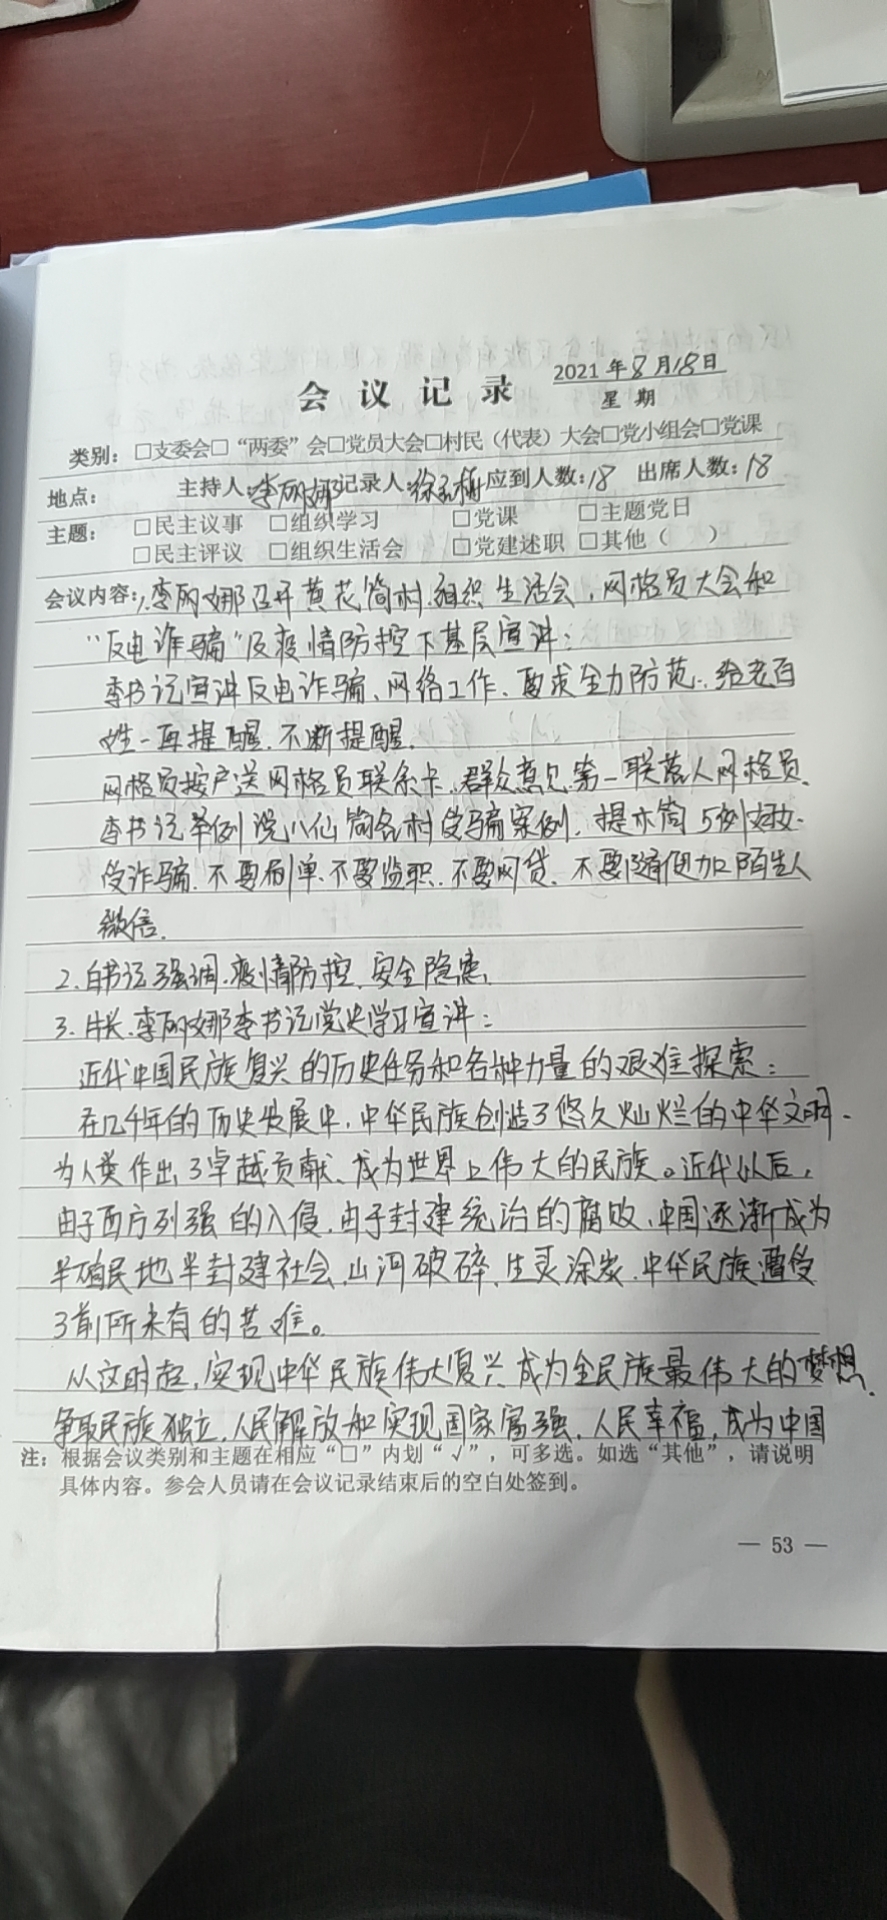 2021年8月18日
会议记录 星期
类别：□支委会□“两委”会□党员大会□村民（代表）大会□党小组会□党课
地点： 主持人：李丽娜 记录人： 应到人数：18 出席人数：18
主题： □民主议事 □组织学习 □党课 □主题党日
□民主评议 □组织生活会 □党建述职 □其他（ ）
会议内容：1.李丽娜召开黄花筒村.组织生活会，网格员大会和
“反电诈骗”及疫情防控下基层宣讲：
李书记宣讲反电诈骗、网络工作、要求全力防范.给老百
姓一再提醒.不断提醒.
网格员按户送网格员联系卡.群众意见第一联落人网格员.
李书记举例说八仙筒各村受骗案例.提木筒5例妇女.
受诈骗.不要刷单.不要 职.不要网贷.不要随便加陌生人
微信.
2.白书记强调.疫情防控.安全隐患.
3. 长.李丽娜李书记党史学习宣讲：
近代中国民族复兴的历史任务和各种力量的艰难探索：
在几千年的历史发展中，中华民族创造了悠久灿烂的中华文明.
为人类作出了卓越贡献、成为世界上伟大的民族。近代以后，
由于西方列强的入侵.由于封建统治的腐败、中国逐渐成为
半殖民地半封建社会.山河破碎、生灵涂炭.中华民族遭受
了前所未有的苦难。
从这时起，实现中华民族伟大复兴、成为全民族最伟大的梦想.
争取民族独立，人民解放和实现国家富强，人民幸福，成为中国
注：根据会议类别和主题在相应“□”内划“√”，可多选。如选“其他”，请说明
具体内容。参会人员请在会议记录结束后的空白处签到。
— 53 —